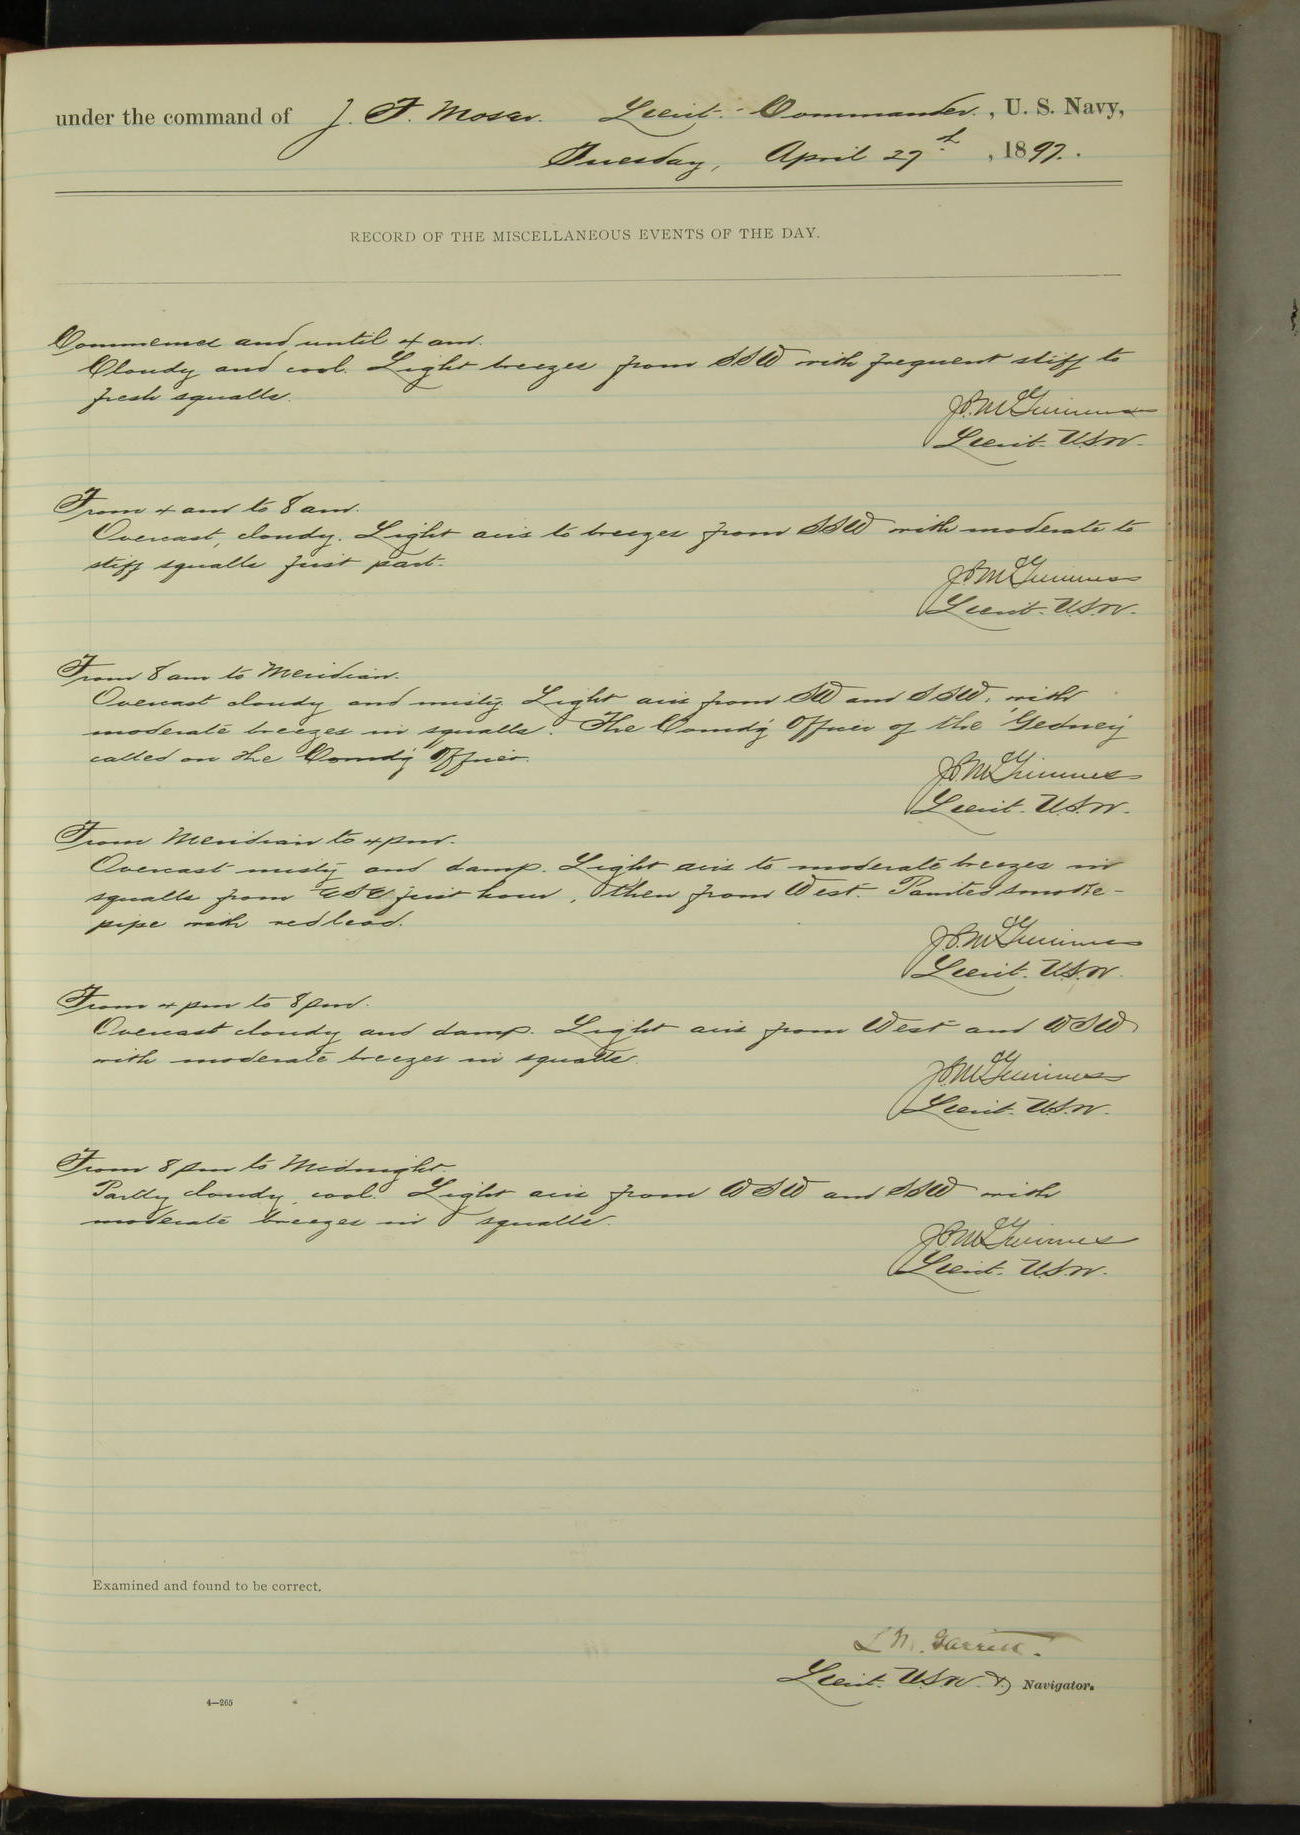 under the command of J. F. Moser. Lieut. Commander. , U. S. Navy,
Tuesday, April 27th , 1897.
RECORD OF THE MISCELLANEOUS EVENTS OF THE DAY.
Commences and until 4 am.
Cloudy and cool. Light breezes from SSW with frequent stiff to
fresh squalls.
Lieut. U.S.N.
From 4 am to 8 am.
Overcast, cloudy. Light airs to breezes from SSW with moderate to
stiff squalls first part.
Lieut. U.S.N.
From 8 am to Meridian.
Overcast cloudy and misty. Light airs from SW and SSW, with
moderate breezes in squalls. The Comd'g Officer of the "Gedney"
called on the Comd'g Officer.
Lieut. U.S.N.
From Meridian to 4 pm.
Overcast misty and damp. Light airs to moderate breezes in
squalls from first hour, then from West. Painted smoke-
pipe with red lead.
Lieut. U.S.N.
From 4 pm to 8 pm.
Overcast cloudy and damp. Light airs from West and WSW
with moderate breezes in squalls.
Lieut. U.S.N.
From 8 pm to Midnight.
Partly cloudy, cool. Light airs from WSW and SSW with
moderate breezes in squalls.
Lieut. U.S.N.
Examined and found to be correct.
L M. Garrett.
Lieut. U.S.N. & Navigator.
4—265